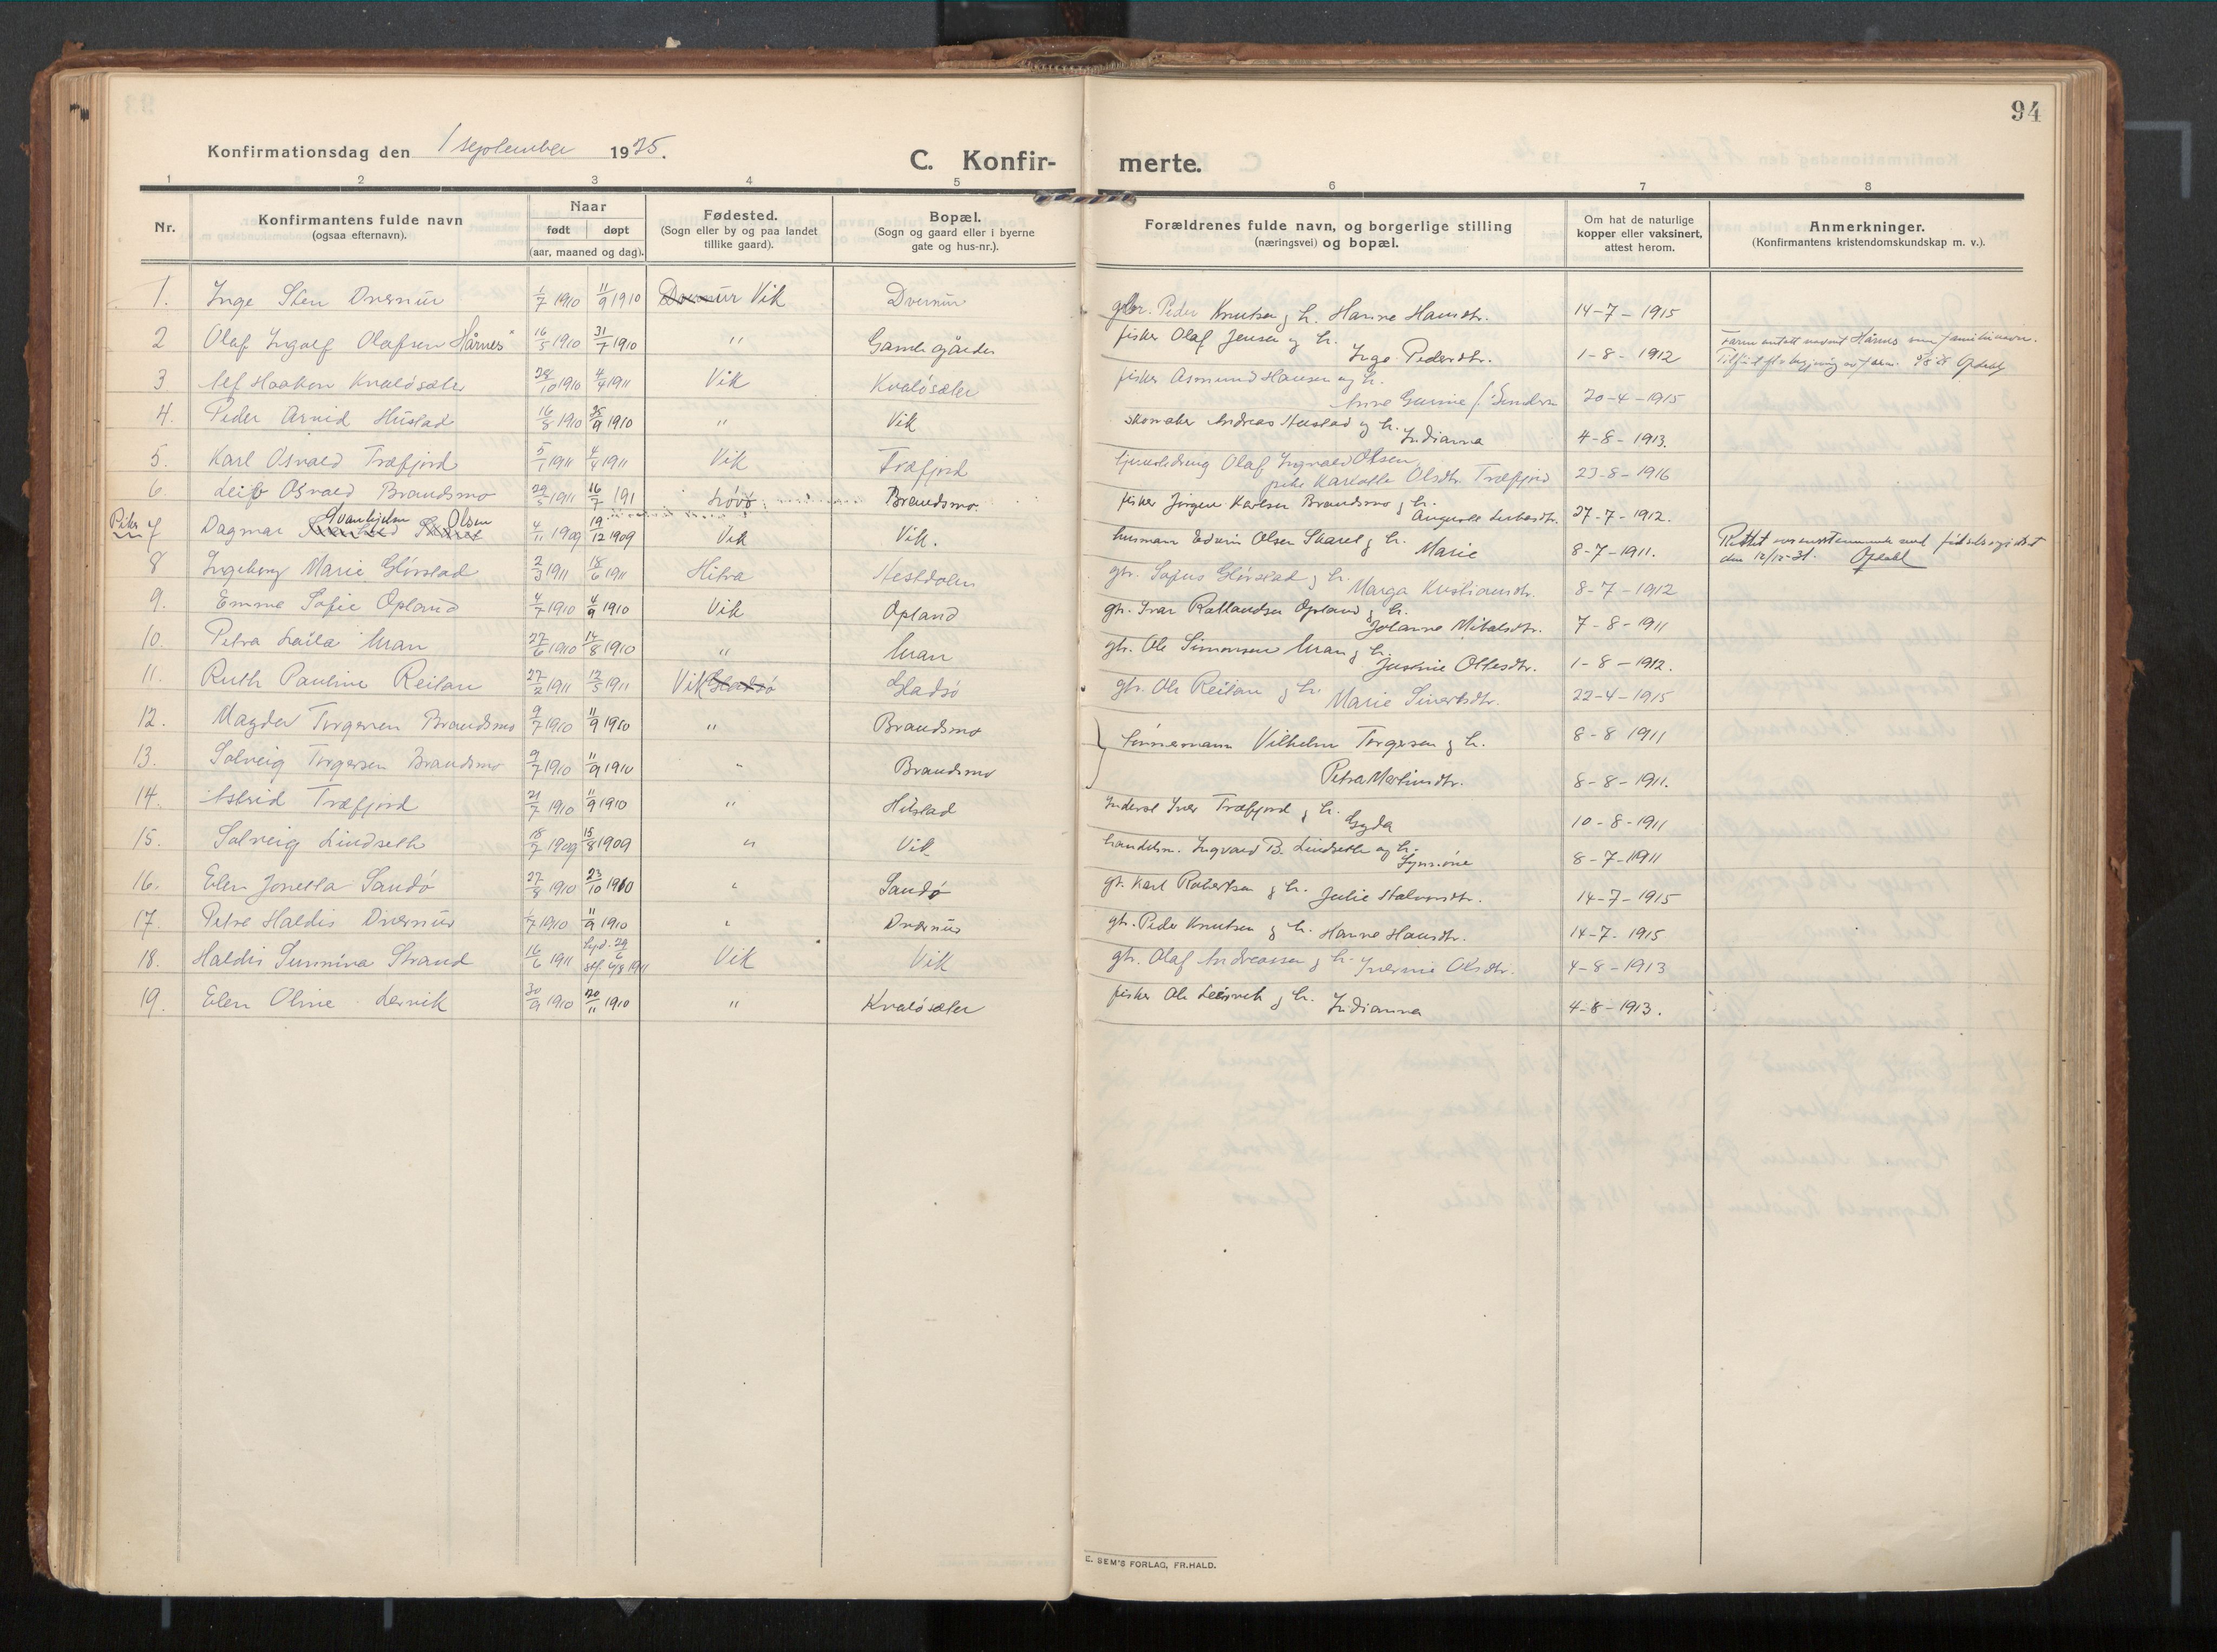 94
Konfirmationsdag den 1 september 1925.
C. Konfir-
merte.
1 2 3 4 5 6 7 8
Nr.
Konfirmantens fulde navn
(ogsaa efternavn).
Naar
født døpt
(aar, maaned og dag).
Fødested.
(Sogn eller by og paa landet
tillike gaard).
Bopæl.
(Sogn og gaard eller i byerne
gate og hus-nr.).
Forældrenes fulde navn, og borgerlige stilling
(næringsvei) og bopæl.
Om hat de naturlige
kopper eller vaksinert,
attest herom.
Anmerkninger.
(Konfirmantens kristendomskundskap m. v.).
1. Inge Sten Dversnur 1/7 1910 11/9 1910 Vik Peder Knutsen g h. Hanne Hansdtr. 14-7-1915
2 Olaf Ingolf Olafsen Hårnes 16/5 1910 31/7 1910 " Gamlegården fisker Olaf Jensen og h. Inga Pedersdtr. 1-8-1912
3. Alf Haakon Kvaløsæter 28/10 1910 4/4 1911 Vik Kvaløsæter fisker Asmund Hansen og h. 20-4-1915
4. Peder Arvid Hustad 16/8 1910 25/9 1910 " Vik skomaker Andreas Hustad og h. Indianna 4-8-1913.
5. Karl Osvald Træfjord 5/1 1911 4/4 1911 Vik Træfjord Olaf Ingvald Olsen pike Karlotte Olsdtr. Træfjord 23-8-1916
6. Leif Osvald Brandsmo 29/5 1911 16/7 191 Brandsmo. fisker Jørgen Karlsen Brandsmo g h. 27-7-1912.
Piker
7 Dagmar Svanhjelm Olsen 4/11 1909 19/12 1909 Vik Vik. husmann Edvin Olsen Skaret g h. Marie 8-7-1911. den 12/12-31. Opdahl
8 Ingeborg Marie Glørstad 2/3 1911 18/6 1911 Hitra Nestdalen gbr. Sofus Glørstad g h. Marga Kristiansdtr. 8-7-1912
9. Emma Sofie Opland 4/7 1910 4/9 1910 Vik Opland gbr. Ivar Opland g h. Johanna 7-8-1911
10. Petra Laila Uran 27/6 1910 14/8 1910 " Uran gbr. Ole Simonsen Uran g h. 1-8-1912.
11. Ruth Pauline Reitan 27/2 1911 12/5 1911 Vik Gladsø gbr. Ole Reitan g h. Marie Sivertsdtr. 22-4-1915
12. Magda Torgersen Brandsmo 9/7 1910 11/9 1910 " Brandsmo Vilhelm Torgersen g h. 8-8 1911
13. Solveig Torgersen Brandsmo 9/7 1910 11/9 1910 " Brandsmo Petra Martinsdtr. 8-8-1911.
14. Astrid Træfjord 21/7 1910 11/9 1910 " Hustad Inderst Iver Træfjord g h. Gyda 10-8-1911
15. Solveig Lindseth 18/7 1909 15/8 1909 " Vik handelsm. Ingvald B. Lindseth og h. 8-7-1911
16. Elen Jonetta Sandø 27/8 1910 23/10 1910 " Sandø gbr. Karl Robertsen g h. Julie Halvorsdtr. 14-7-1915
17. Petra Haldis Dversnur 1/7 1910 11/9 1910 " Dversnur gbr. Peder Knutsen g h. Hanne Hansdtr. 14-7-1915
18. Haldis Sunniva Strand 16/6 1911 Vik Vik gbr. Olaf Andreassen g h. Olsdtr. 4-8-1913
19. Elen Oline Lervik 30/9 1910 20/11 1910 " Kvaløsæter fisker Ole Leirvik g h. Indianna 4-8-1913.
E. SEM'S FORLAG, FR.HALD.